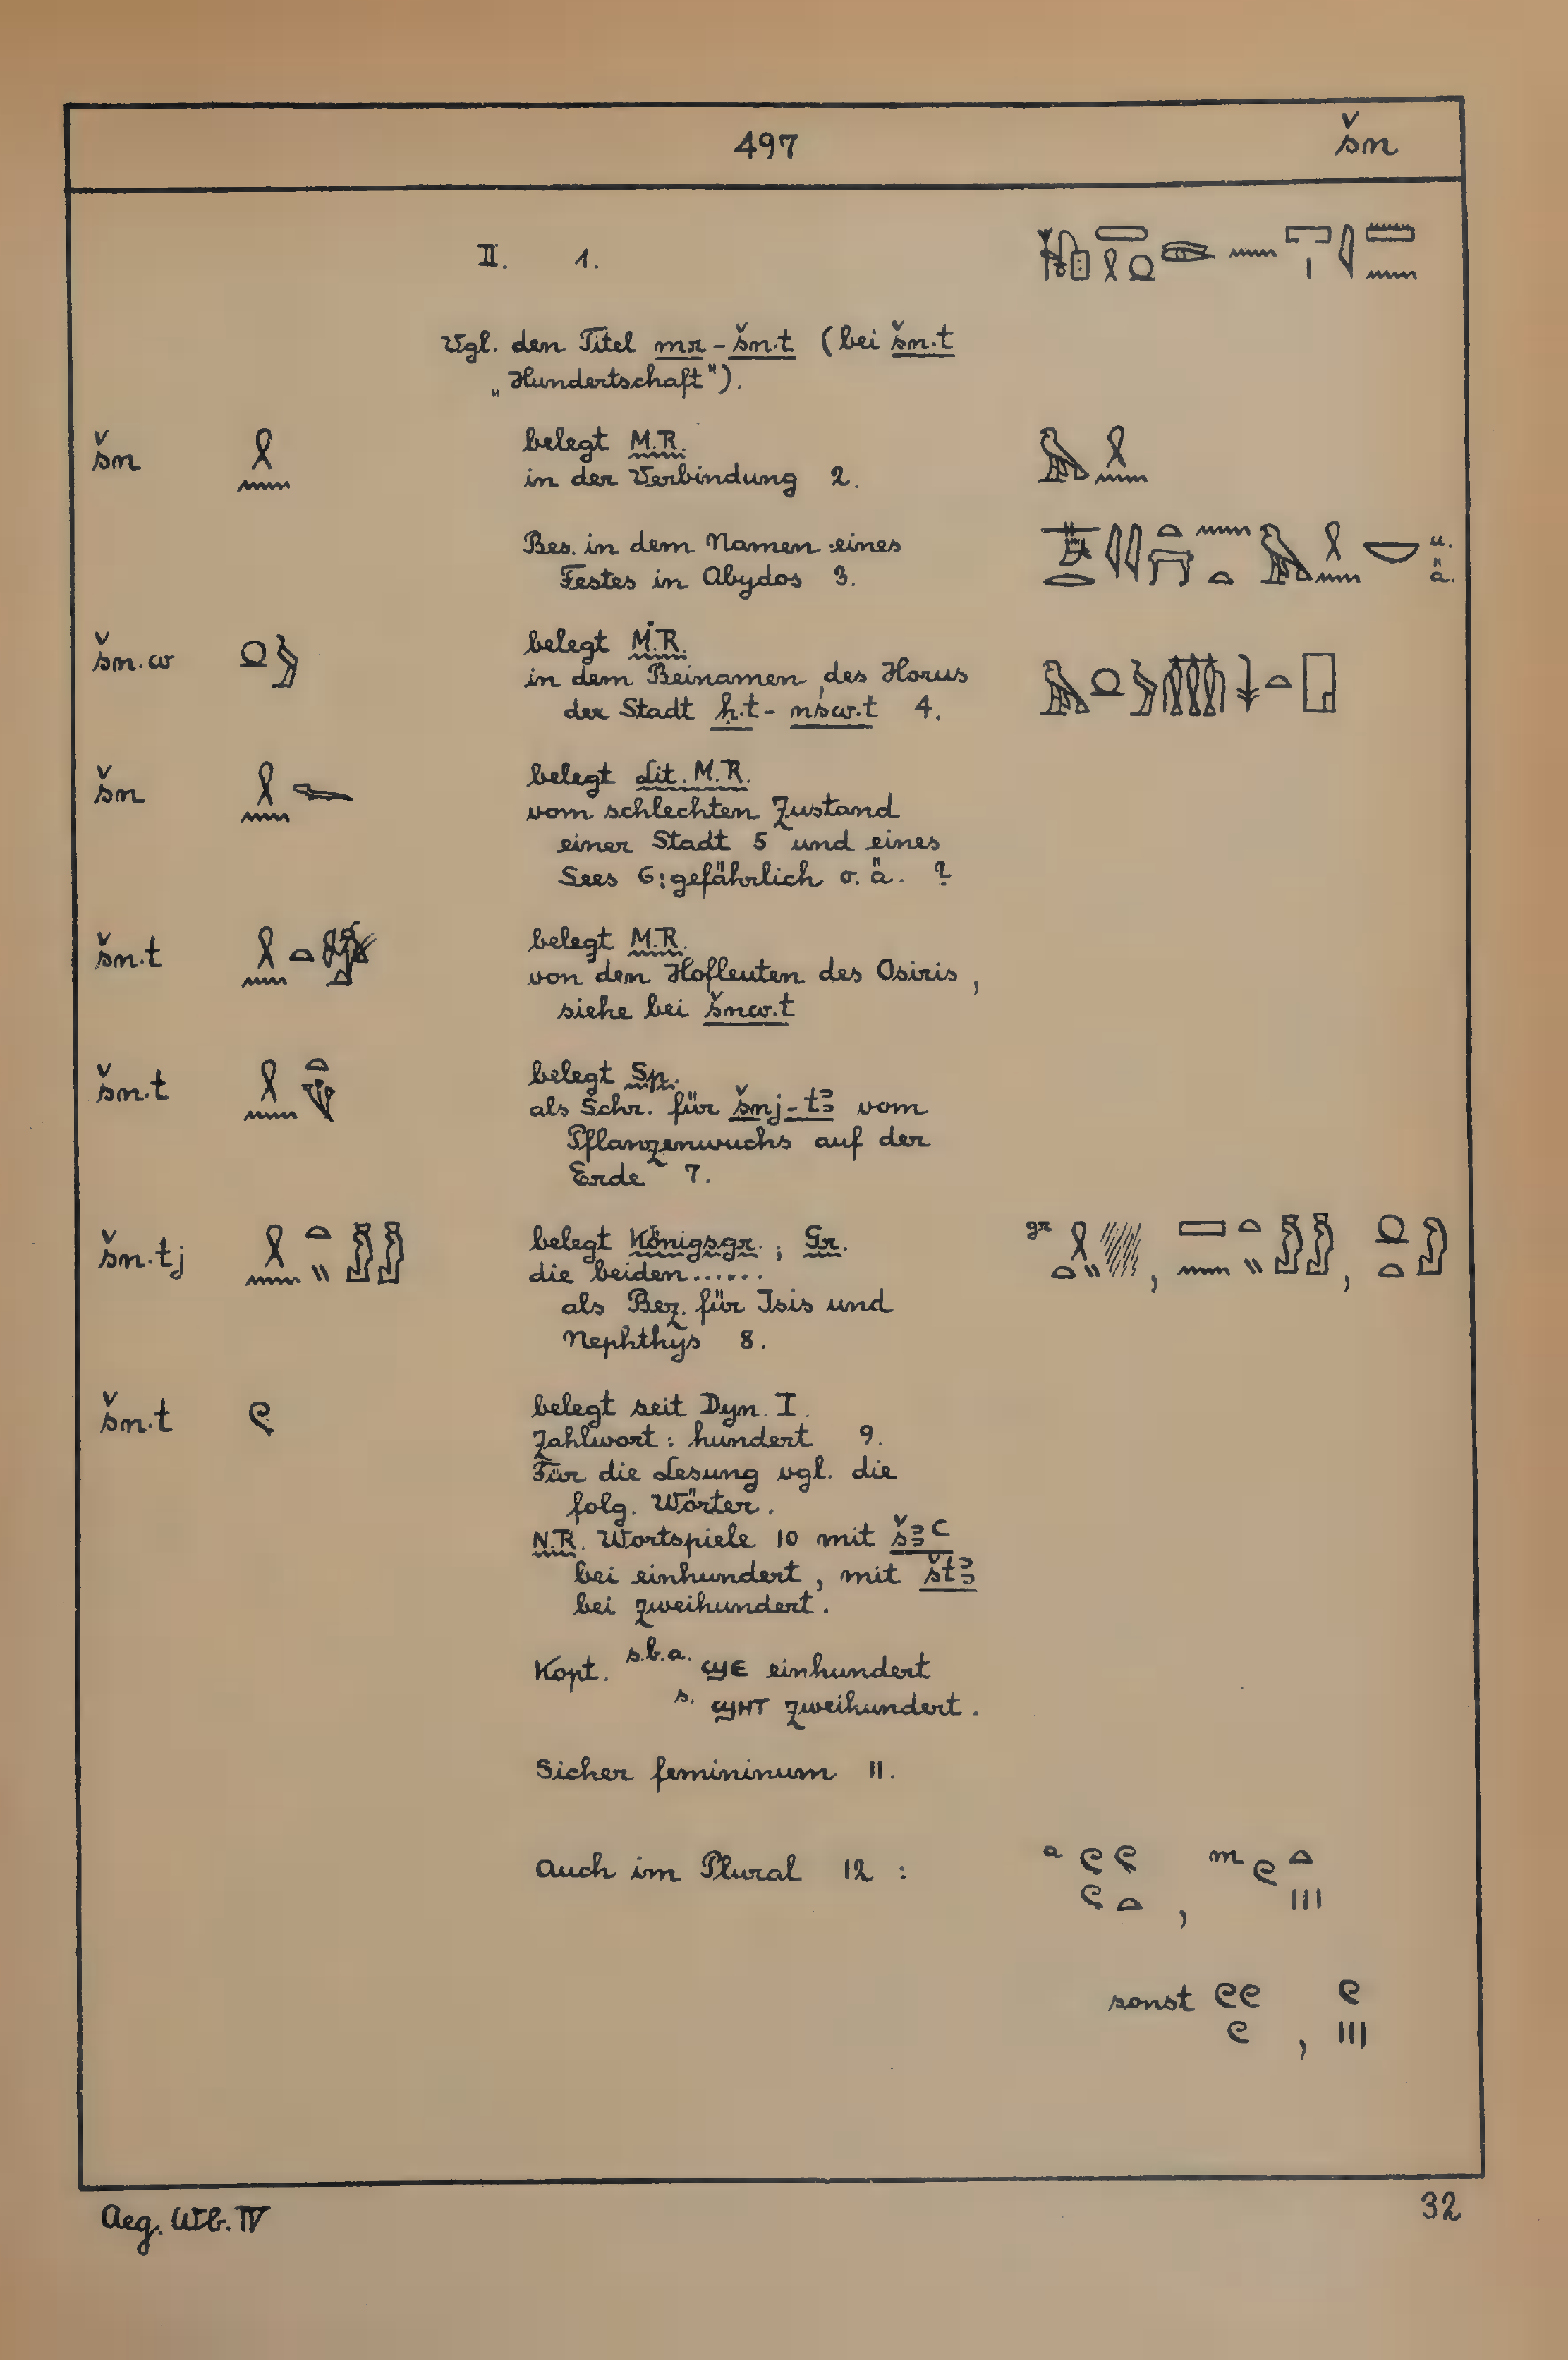 497 šn
II. 1.
Vgl. den Titel mr-šn.t (bei šn.t
„Hundertschaft").
šn belegt M.R.
in der Verbindung 2.
Bes. in dem Namen eines u.
Festes in Abydos 3. ä.
šn.w belegt M.R.
in dem Beinamen des Horus
der Stadt ḥ.t-nśw.t 4.
šn belegt Lit. M.R.
vom schlechten Zustand
einer Stadt 5 und eines
Sees 6: gefährlich o. ä. ?
šn.t belegt M.R.
von den Hofleuten des Osiris,
siehe bei šnw.t
šn.t belegt Sp.
als Schr. für šnj-tꜣ vom
Pflanzenwuchs auf der
Erde 7.
šn.tj belegt Königsgr.; Gr. gr , ,
die beiden......
als Bez. für Isis und
Nephthys 8.
šn.t belegt seit Dyn. I.
Zahlwort: hundert 9.
Für die Lesung vgl. die
folg. Wörter.
N.R. Wortspiele 10 mit šꜣꜥ
bei einhundert, mit štꜣ
bei zweihundert.
Kopt. s.b.a. ϣⲉ einhundert
s. ϣⲏⲧ zweihundert.
Sicher femininum 11.
Auch im Plural 12 : a 𓍢𓍢𓍢𓏏, m 𓍢𓏏𓏥
sonst 𓍢𓍢𓍢, 𓍢𓏥
Aeg. Wb. IV 32